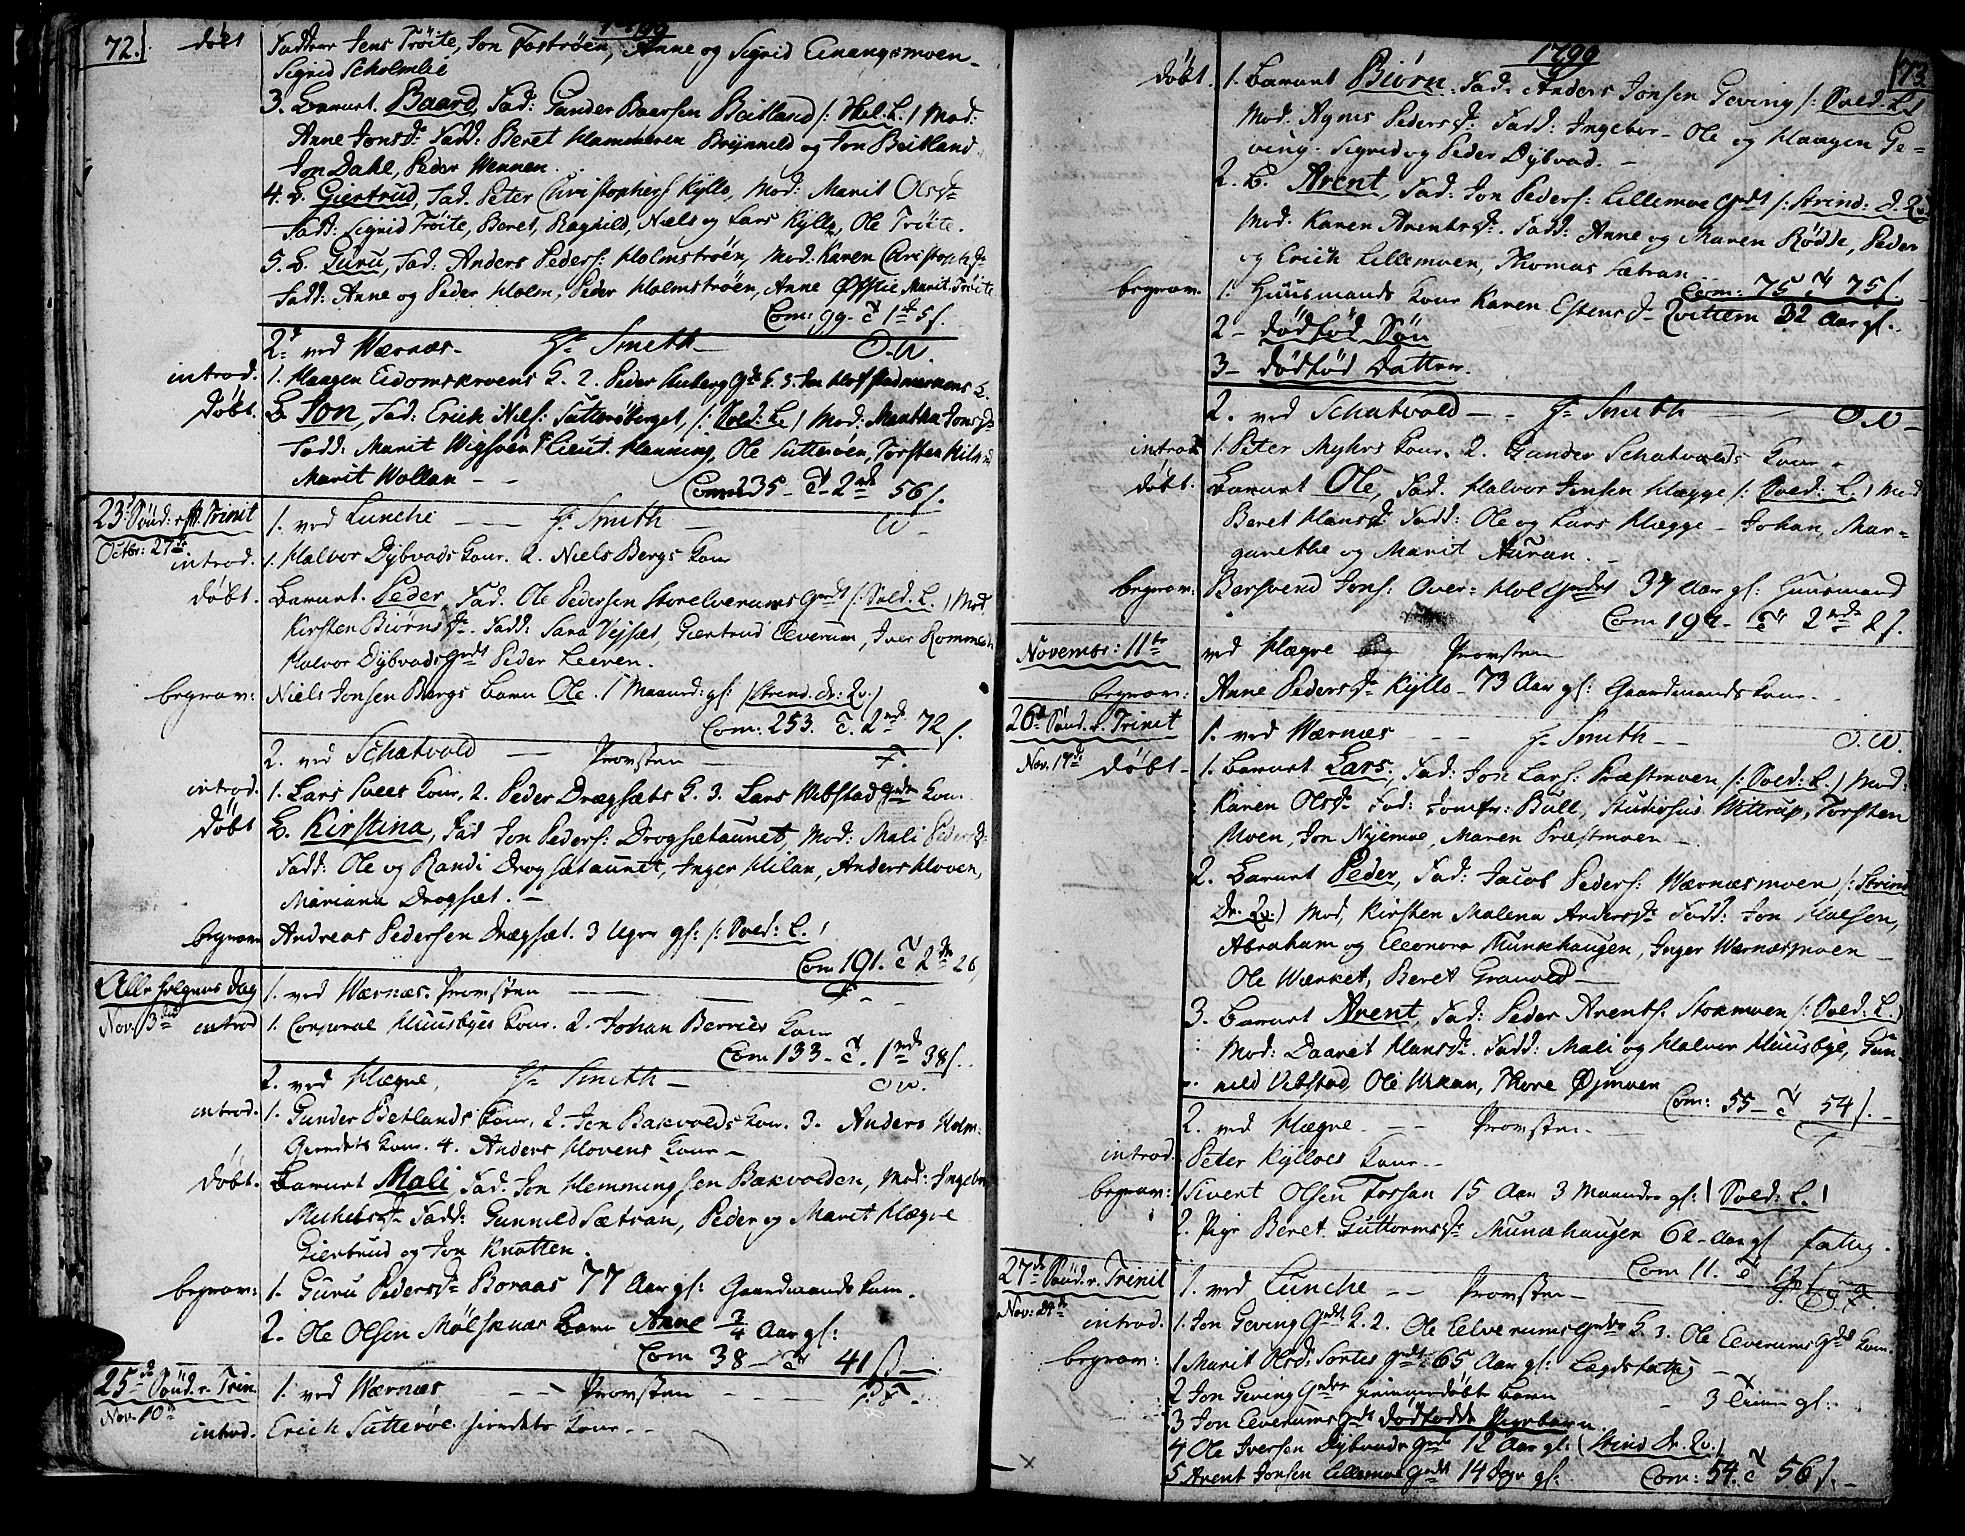 72. 1799
døbt Faddere Jens Tröite, Jon Fostrøen, Anne og Sigrid Einangsmoen
Sigrid Scholmlie
3. Barnet. Baard, Fad: Gunder Baarsen Beitland /: Skel. L. / Mod:
Anne Jonsdr. Fadd: Beret Hammeren Brynnild og Jon Beitland
Jon Dahl, Peder Wennen.
4. B. Giertrud, Fad. Peter Christophers Kyllo, Mod: Marit Olsdr
Fadd: Sigrid Tröite, Beret, Raghild, Niels og Lars Kyllo, Ole Tröite.
5. B. Guru, Fad. Anders Peders: Holmströen, Mod. Karen Christophdr
Fadd: Anne og Peder Holm, Peder Holmströen, Anne Marit Tröite
Com: 99- c 1rd 5 s.
2. ved Wærnæs- Hr Smith- O.W.
introd. 1. Haagen Eidomskroens K. 2. Peder Huberg K. 3. Jon K.
døbt. B. Jon, Fad: Erich Niels: Sutterøberget, /: Sold: L. / Mod: Martha Jonsdr
Fadd: Marit Lieut. Henning, Ole Sutterøen, Torsten
Marit Wollan - -
Com 235 - c 2rd 56 s.
23d Sönd: eft. Trinit 1. ved Lunche - - Hr Smith - W
Octbr: 27de introd. 1. Halvor Dybvads Kone. 2. Niels Bergs Kone
døbt. Barnet. Peder, Fad. Ole Pedersen Storelverums /: Sold. L. / Mod.
Kirsten Biörnsdr. Fadd: Sara Vejset, Giertrud Elverum, Iver
Halvor Dybvads Peder Leeren.
begrav: Niels Jonsen Bergs Barn Ole. 1 Maaned: gl: /Strind. dr. Qv:/
Com: 253. c. 2rd 72 s.
2. ved Schatvold - Provsten - F.
introd. 1. Lars Svees Kone, 2. Peder Drægsets K. 3. Lars Wibstad Kone
døbt B. Kirstina, Fad Jon Peders: Drogsætaunet, Mod: Mali Pedersdr
Fadd: Ole og Randi Drogsætaunet, Inger Hilan, Anders Hoven,
Mariana Drogset. -
begrav Andreas Pedersen Drægset. 3 Uger gl: /: Sold: L. /
Com 191. c 2rd 26
Alle helgens dag 1. ved Wærnæs. Provsten - F - -
Nov. 3die introd 1. Corporal Huusbyes Kone. 2. Johan Kone
Com 133 - c. 1rd 38 s.
2. ved Hægre, Hr Smith - O W.
introd. 1. Gunder Beitlands Kone, 2. Jon Bakvolds Kone. 3. Anders Holm:
Kone. 4. Anders Hovens Kone -
døbt. Barnet Mali, Fad. Jon Hemmingsen Bakvolden, Mod: Ingeb
Michelsdr. Fadd: Gunnild Sætran, Peder og Marit Hægre
Giertrud og Jon Knotten.
begrav: 1. Guru Pedersdr Boraas 77 Aar gl: Gaardmands Kone.
2. Ole Olsen Mölsknæs Barn Anne 3/4 Aar gl:
Com 38 - c 41 s -
25de Sönd. e. Trin. 1. ved Wærnæs - - Provsten - - F -
Nov. 10de introd. Erich Sutteröe Kone - -
1799 73
døbt. 1. Barnet Biörn. Fad. Anders Jonsen Geving /: Sold. L /
Mod. Agnes Pedersdr. Fadd: Ingebor- Ole og Haagen Ge=
ving. Sigrid og Peder Dybvad. -
2. B. Arent, Fad: Jon Peders: Lillemoe /: Strind: d. Qv:
Mod. Karen Arentsdr. Fadd: Anne og Maren Rödde, Peder
og Erich Lillemoen, Thomas Sætran
Com: 75 c 75 s.
begrav. 1. Huusmands Kone Karen Estensdr Qvittem 32 Aar gl.
2 - dödföd Sön
3 - dödföd Datter.
2. ved Schatvold - - Hr Smith - O W -
introd 1. Peter Myhrs Kone. 2. Gunder Schatvolds Kone.
døbt. Barnet Ole, Fad. Halvor Jensen Hægge /: Sold: L. / Mod
Beret Hansdr Fadd: Ole og Lars Hægge - Johan, Mar=
garethe og Marit Auran. -
begrav: Bersvend Jons: Over: Hol 37 Aar gl: Huusmand
Com 194 - c 2rd 2 s.
Novembr: 11te ved Hægre Provsten
begrav: Anne Pedersdr Kyllo - 73 Aar gl: Gaardmands Kone. -
26d Sönd. e. Trinit 1. ved Wærnæs - - Hr Smith - - O.W.
Nov. 17de døbt - 1. Barnet Lars. Fad: Jon Lars: Præstmoen /: Sold: L. / Mod:
Karen Olsdr Fad: Jomfr: Bull, Studiosus Wittrup, Torsten
Moen, Jon Nyemoe, Maren Præstmoen -
2. Barnet Peder, Fad: Jacob Peders: Wærnæsmoen /: Strind
Dr. Qv: / Mod, Kirsten Malena Andersdr Fadd: Jon Halsen,
Abraham og Eleonora Munkhaugen, Inger Wærnæsmoen -
Ole Werket, Beret Granvold -
3. Barnet Arent, Fad: Peder Arents: Stokmoen /: Sold: L. /
Mod: Daaret Hansdr. Fadd: Mali og Halvor Huusbye, Gun
nild Vibstad, Ole Thore Öjmoen
Com: 55 - c 54 s. -
2. ved Hægre. - - Provsten. -
introd. Peter Kylloes Kone - -
begrav: 1 Sivert Olsen Fossan 15 Aar 3 Maaneder gl: / Sold: L. /
2. Pige Beret Guttormsdr Munkhaugen 62 - Aar gl fattig.
Com 11. c
27de Sönd. e. Trinit 1. ved Lunche - - Provsten - F
Nov: 24de introd. 1. Jon Geving K. 2. Ole Elverums K. 3. Ole Elverums Kone
begrav: 1 Marit Olsdr Sortes 65 Aar gl: Lægdsfattig -
2 Jon Geving hiemmedøbte Barn - 3 Timer gl:
3 Jon Elverums dödfödde Pigebarn
4 Ole Iversen Dybvads 12 Aar gl: (Strind Dr. Qv:)
5 Arent Jonsen Lillemoe 14 Dage gl: Com: 54. c 56 s. -